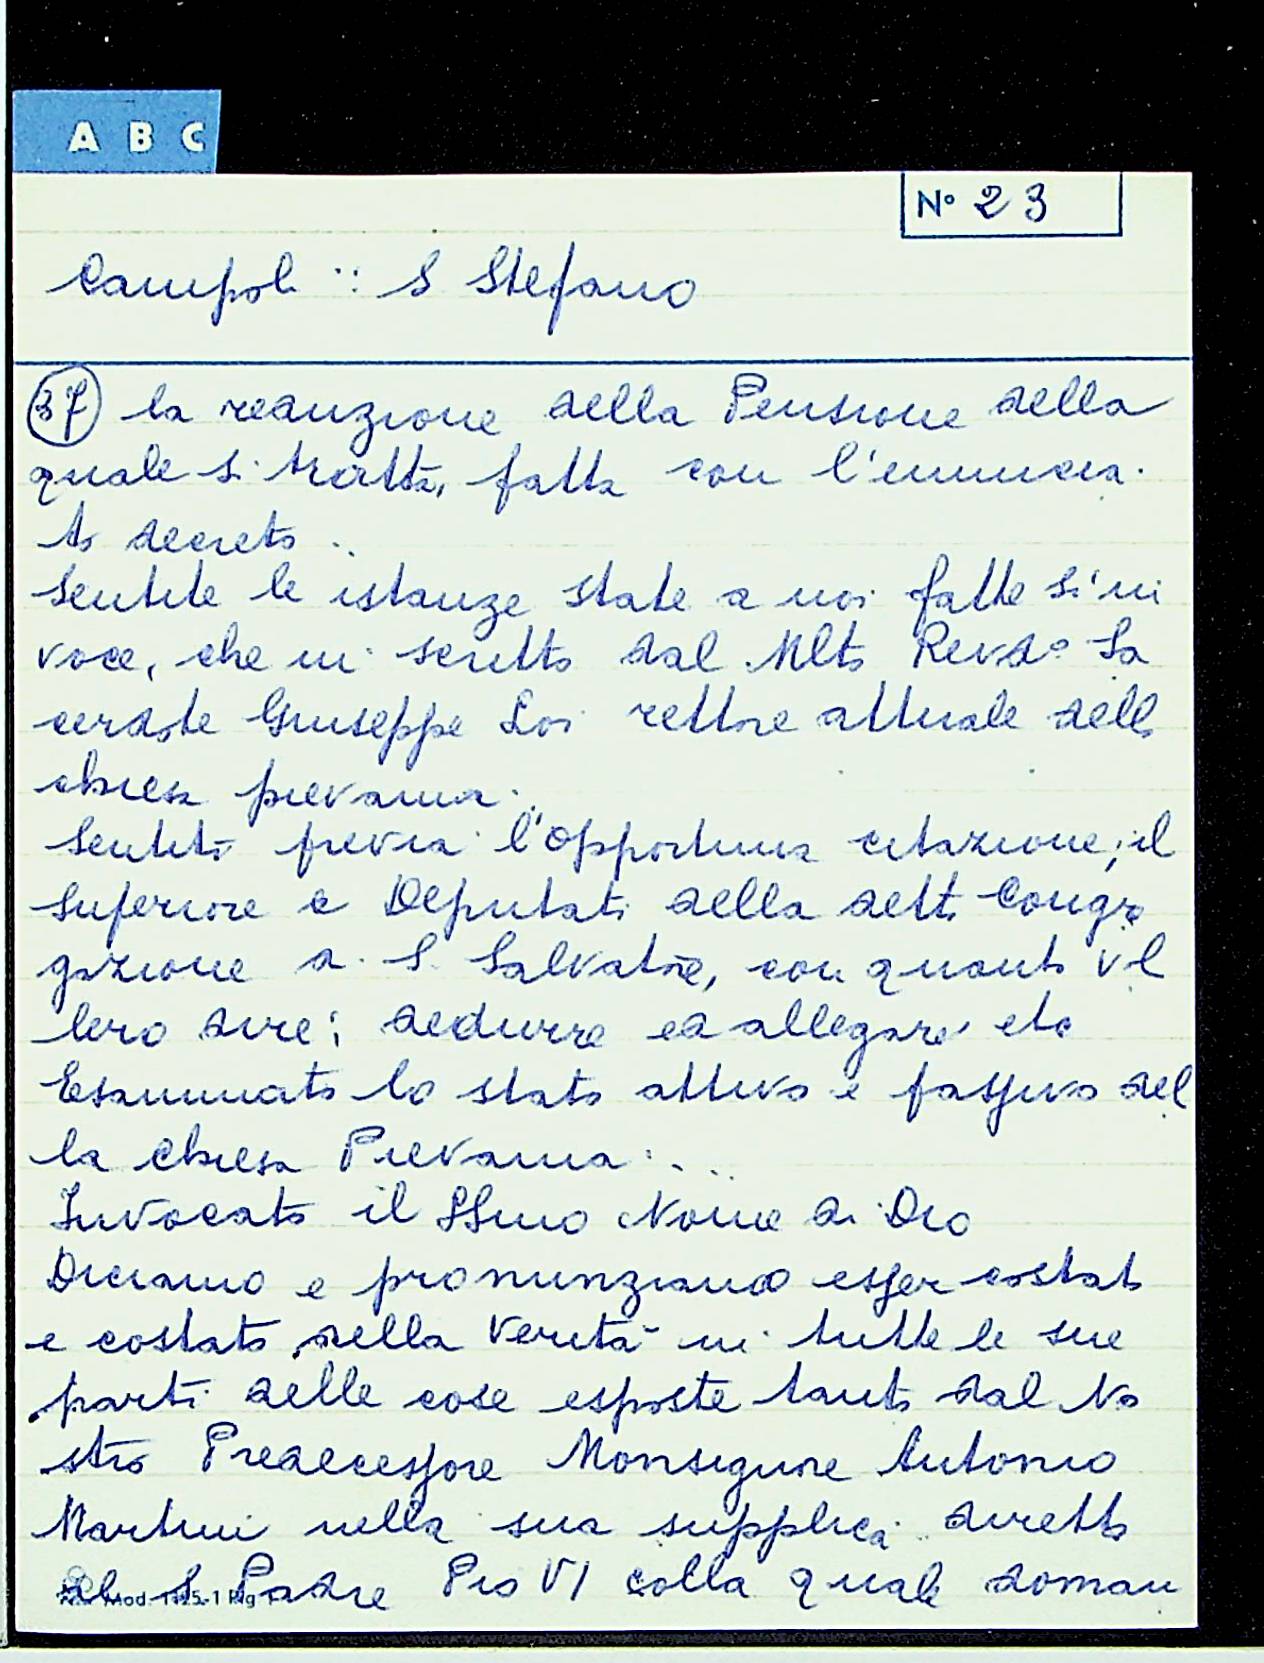 A B C
N° 23
Campoli :: S Stefano
37 la reduzione della Pensione della
quale si tratta, fatta con l'enuncia-
to decreto ..
Sentite le istanze state a noi fatte si in
voce, che in scritto dal Mlto Revdo Sa
cerdote Giuseppe Loi rettore attuale della
chiesa pievania.
Sentiti previa l'opportuna citazione, il
Superiore e Deputati della detta Congre
gazione a S. Salvatore, con quanto vol
lero dire; dedurre ed allegare etc
Esaminato lo stato attivo e passivo del
la Chiesa Pievania ...
Invocato il SSmo Nome di Dio
Diciamo e pronunziamo esser costato
e costato, nella verità in tutte le sue
parti delle cose esposte tanto dal No
stro Predecessore Monsignore Antonio
Martini nella sua supplica diretta
al S. Padre Pio VI colla quale doman